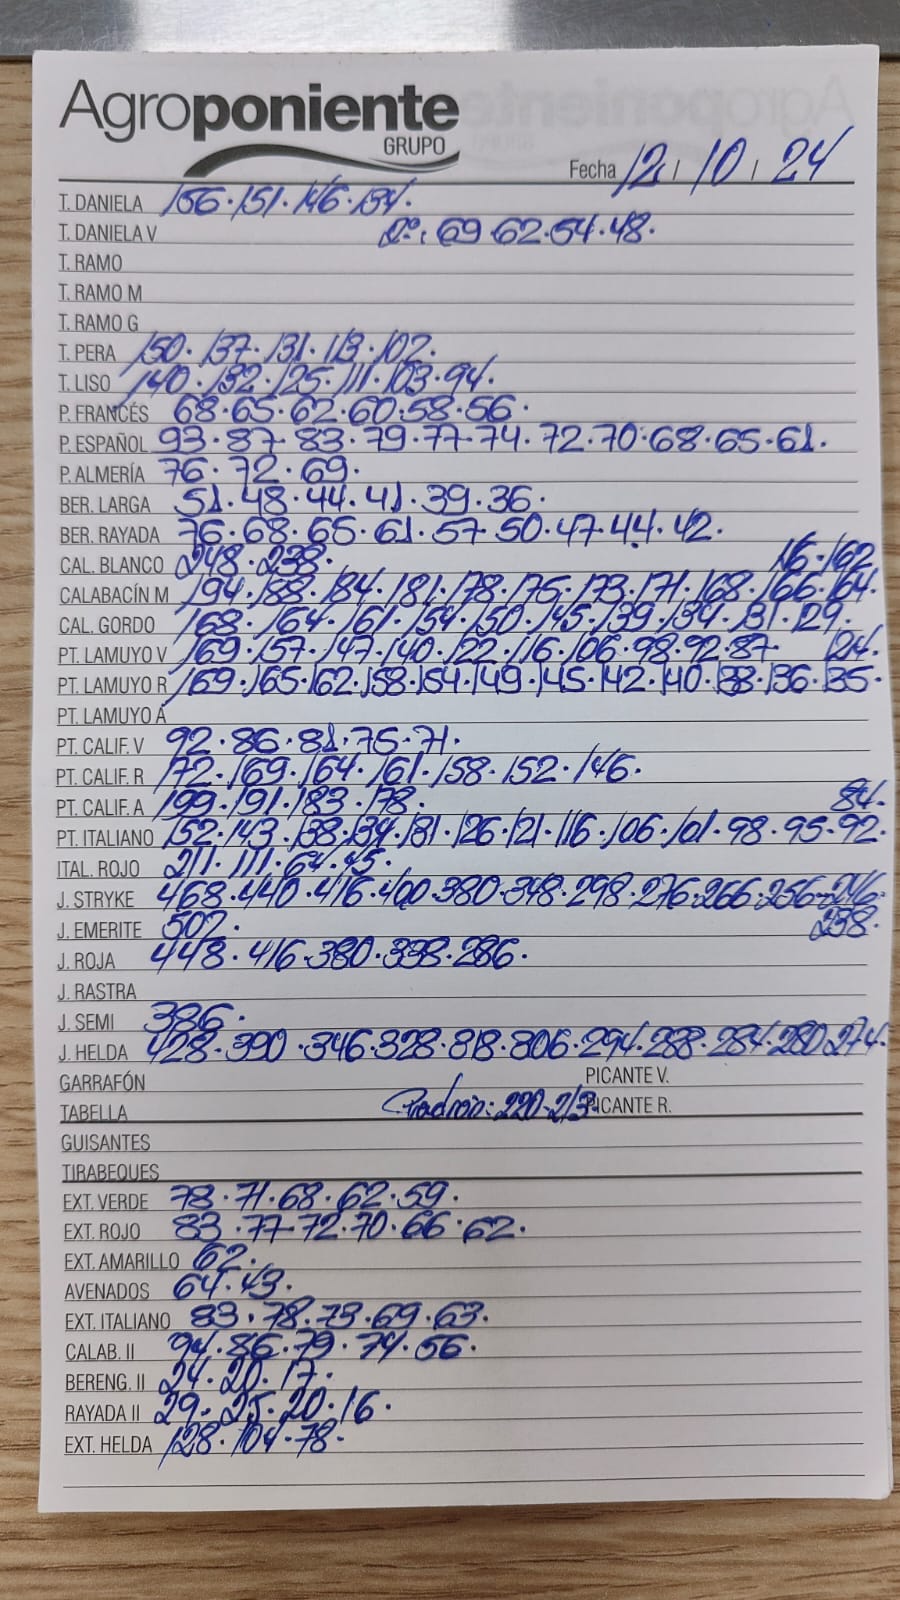 Agroponiente
GRUPO
Fecha 12 / 10 / 24
T. DANIELA 156.151.146.134.
T. DANELA V 2º: 69 62.54.48.
T. RAMO
T. RAMO M
T. RAMO G
T. PERA 150.137.131.113.102.
T. LISO 140.132.125.111.103.94.
P. FRANCÉS 68.65.62.60.58.56.
P. ESPAÑOL 93.87.83.79.77.74.72.70.68.65.61.
P. ALMERÍA 76.72.69.
BER. LARGA 51.48.44.41.39.36.
BER. RAYADA 76.68.65.61.57.50.47.44.42.
CAL. BLANCO 248.238. 162
CALABACÍN M 194.188.184.181.178.175.173.171.168.166.164.
CAL. GORDO 168.164.161.154.150.145.139.134.131.129.
PT. LAMUYO V 169.157.147.140.122.116.106.98.92.87 124.
PT. LAMUYO R 169.165.162.158.154.149.145.142.140.138.136.135.
PT. LAMUYO A
PT. CALIF. V 92.86.81.75.71.
PT. CALIF. R 172.169.164.161.158.152.146.
PT. CALIF. A 199.191.183.178. 84.
PT. ITALIANO 152.143.138.134.181.126.121.116.106.101.98.95.92.
ITAL. ROJO 211.111.64.45.
J. STRYKE 468.440.416.400.380.348.298.276.266.256.246.
J. EMERITE 502. 238.
J. ROJA 448.416.380.338.286.
J. RASTRA
J. SEMI 386.
J. HELDA 428.390.346.328.318.306.294.288.284.280.274.
GARRAFÓN PICANTE V.
TABELLA Padron: 220-213. PICANTE R.
GUISANTES
TIRABEQUES
EXT. VERDE 78.71.68.62.59.
EXT. ROJO 83.77.72.70.66.62.
EXT. AMARILLO 62.
AVENADOS 64.43.
EXT. ITALIANO 83.78.73.69.63.
CALAB. II 94.86.79.74.56.
BERENG. II 24.20.17.
RAYADA II 29.25.20.16.
EXT. HELDA 128.104.78.